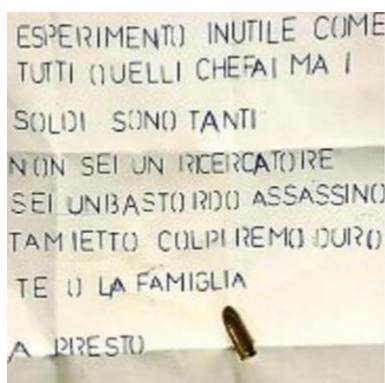 ESPERIMENTO INUTILE COME
TUTTI QUELLI CHEFAI MA I
SOLDI SONO TANTI
NON SEI UN RICERCATORE
SEI UNBASTORDO ASSASSINO
TAMIETTO COLPIREMO DURO
TE O LA FAMIGLIA
A PRESTO